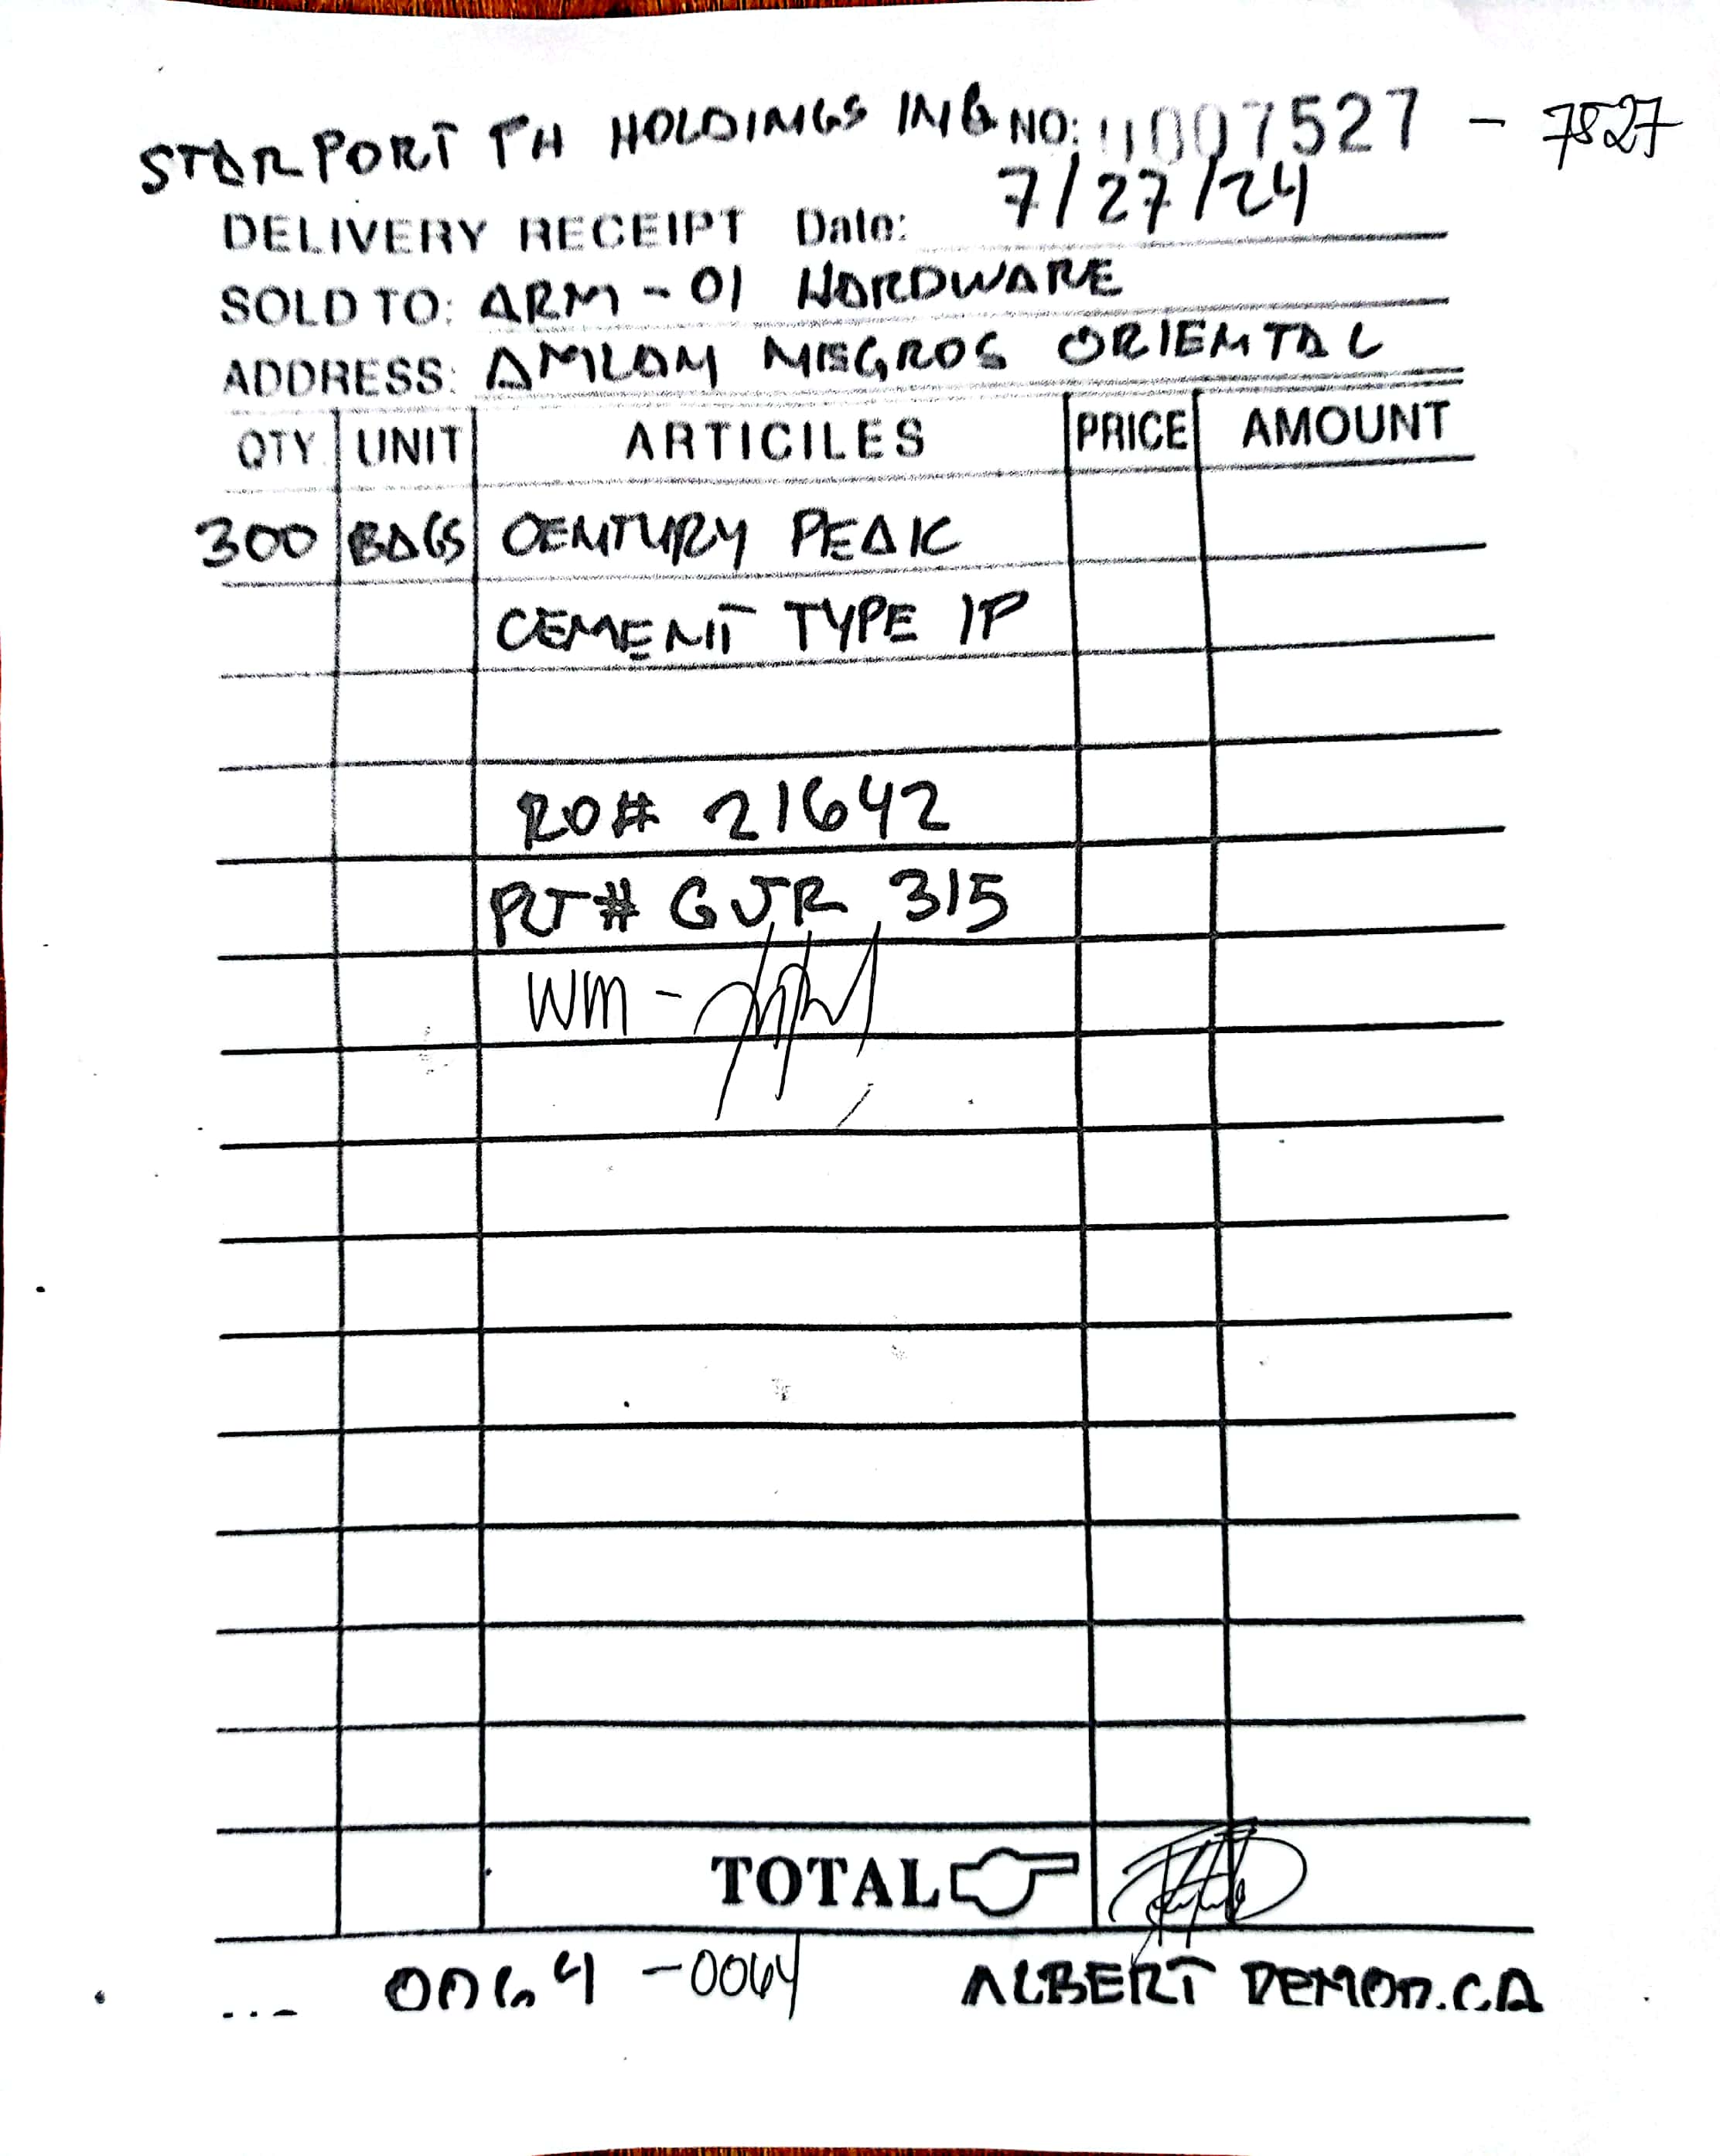 STARPORT TH HOLDINGS INC NO: 0007527 - 7527
DELIVERY RECEIPT Date: 7/27/24
SOLD TO: ARM-01 HARDWARE
ADDRESS: AMLAN NEGROS ORIENTAL
QTY. UNIT ARTICILES PRICE AMOUNT
300 BAGS CENTURY PEAK
CEMENT TYPE 1P
RO# 21642
PLT# GJR 315
WM -
TOTAL
0064 -0064 ALBERT